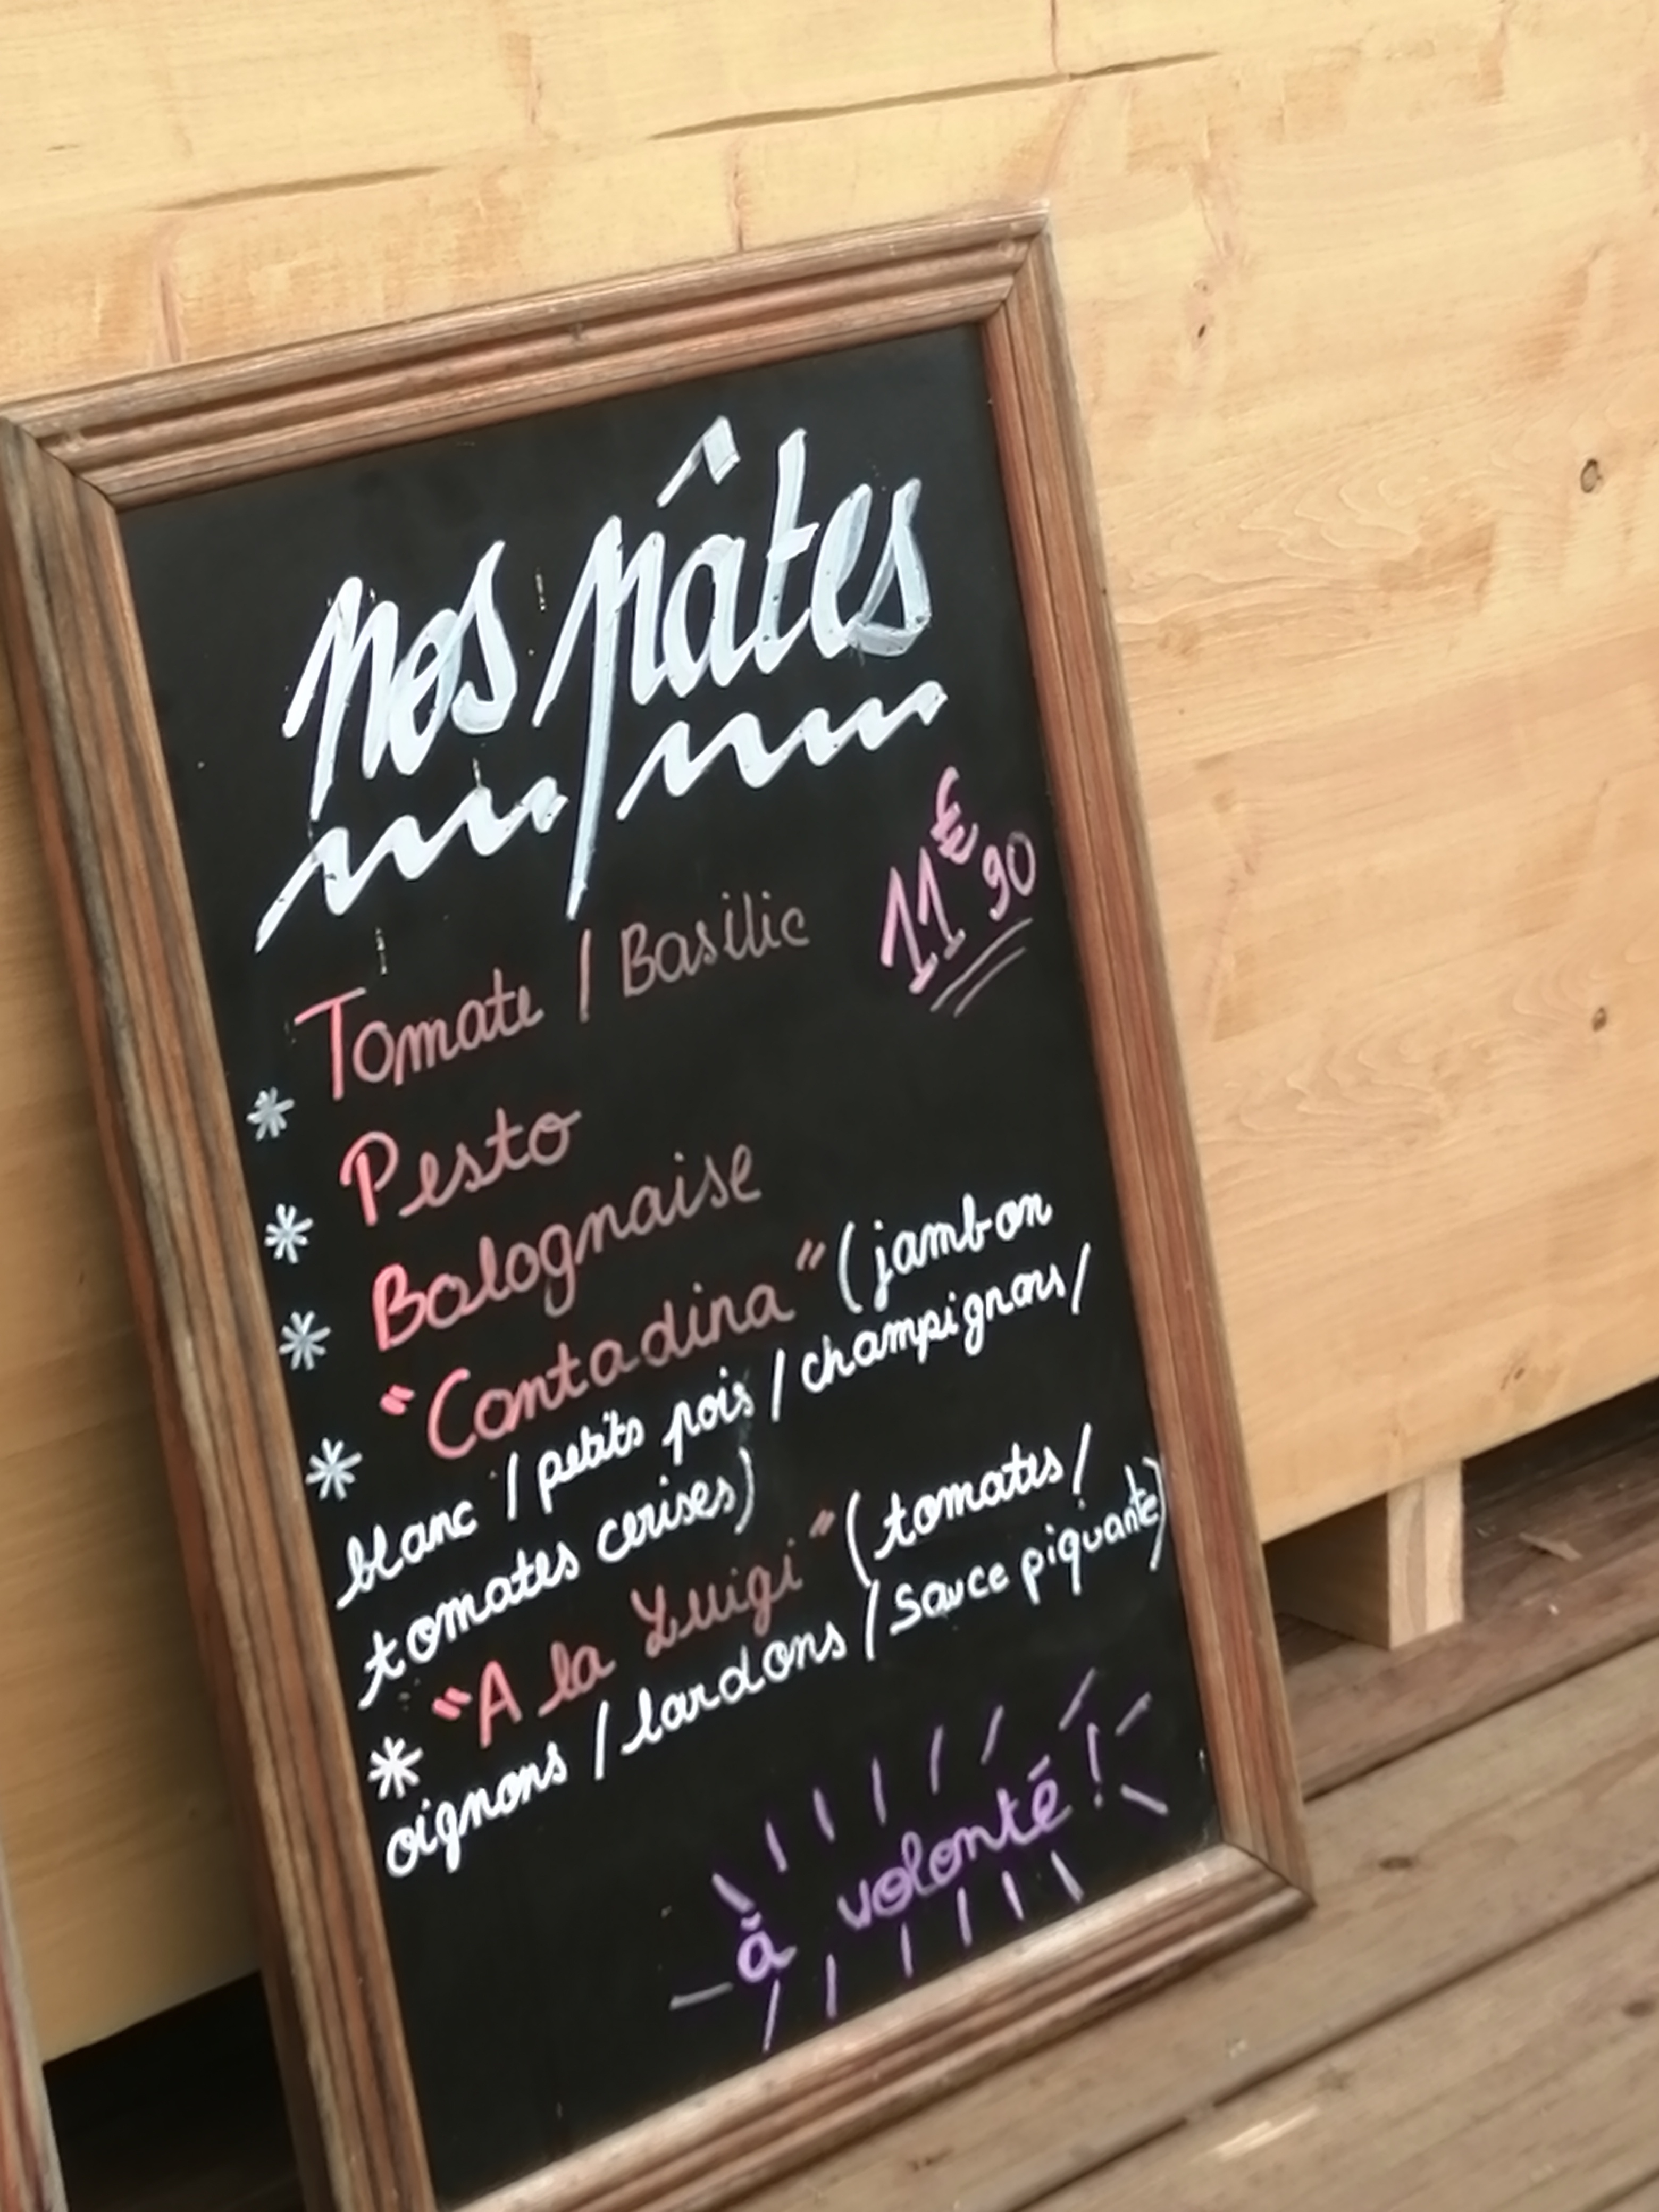 Nos pâtes
11€90
* Tomate / Basilic
* Pesto
* Bolognaise
* "Contadina" (jambon
blanc / petits pois / champignons /
tomates cerises)
* "A la Luigi" (tomates /
oignons / lardons / sauce piquante)
à volonté !